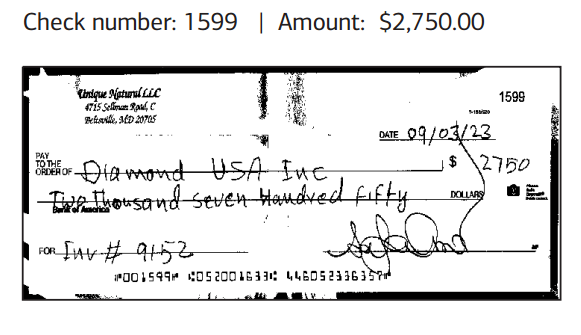 Check number: 1599 | Amount: $2,750.00
Unique Natural LLC
4715 Sellman Road, C
Beltsville, MD 20705
1599
DATE 09/03/23
PAY
TO THE
ORDER OF Diamond USA Inc $ 2750
Two Thousand Seven Handred Fifty DOLLARS
Bank of America
FOR Inv # 9152
⑈001599⑈ ⑆052001633⑆ 446052336357⑈